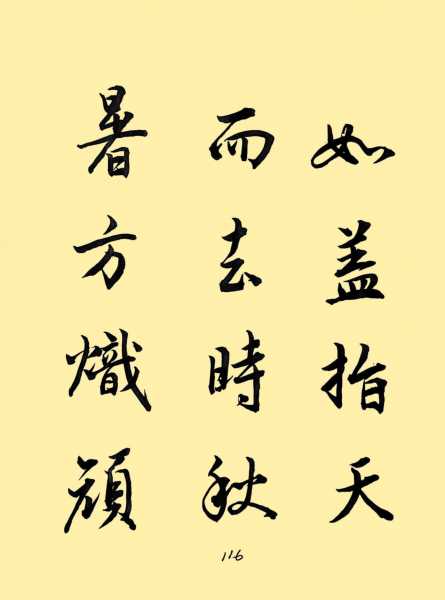 如盖指天
而去時秋
暑方熾
116